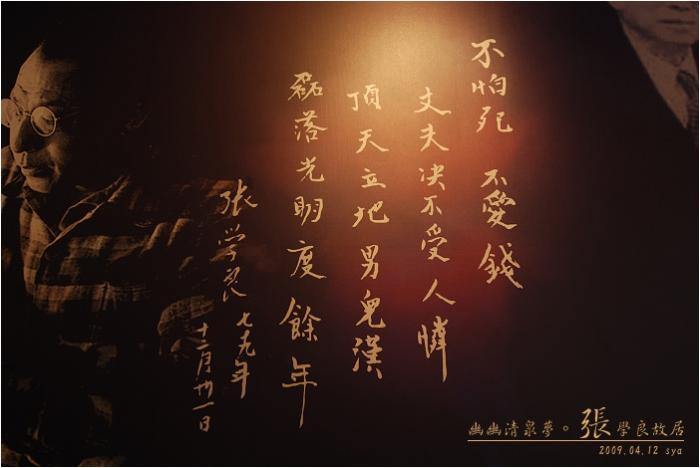 不怕死 不愛錢
丈夫决不受人憐
頂天立地男兒漢
磊落光明度餘年
張学良 七九年
十二月卅一日
幽幽清泉夢。張學良故居
2009.04.12 sya